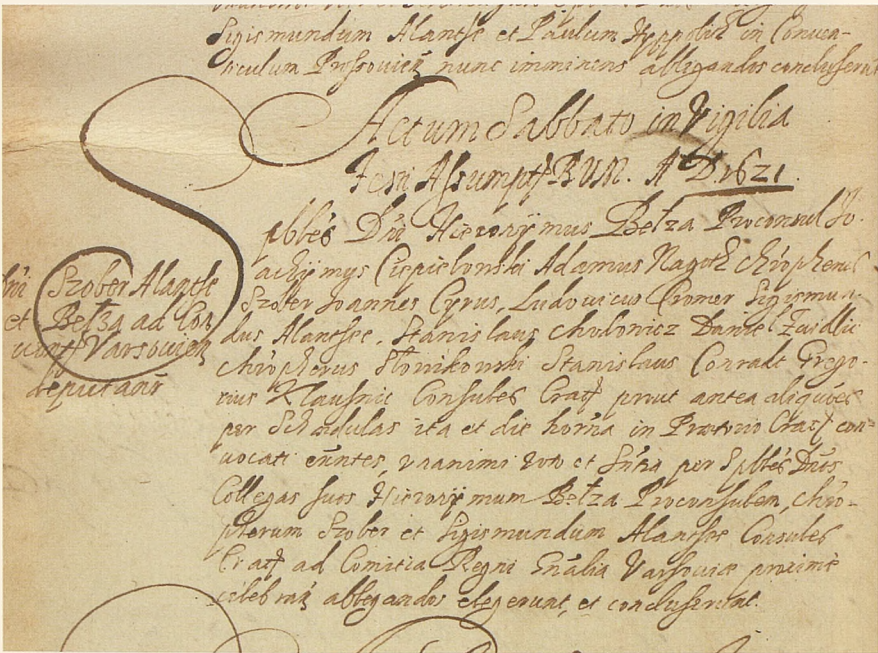 Sigismundum Alantse et Paulum in Conven-
ticulum nunc imminens ablegandos concluserunt
Actum Sabbato in Vigilia
Festi Assumpt BVM. Aº D 1621.
spbłes Dnī Hieronÿmus Bełza Proconsul Jo.
achÿmus Ciepielowski Adamus chrōpherus
Szober Joannes Cyrus, Ludovicus Cromer Sigismun-
dus Alantsee, Stanislaus Chołonicz Daniel
chrōpherus Słonikowski Stanislaus Conradt Grego-
rius Klausnic Consules Crac prout antea aliquōes
per Schædulas ita et die horna in Prætorio Crac con-
vocati eūntes, vnanimi voto et Sntia per Spłes Dnos
Collegas suos Hieronÿmum Bełza Proconsulem, chrō-
pherum Szober et Sigismundum Alantsee Consules
Crac ad Comitia Regni Gnālia Varsoviæ proxime
ablegandos elegerunt, et concluserunt.
Szober Alantse
et Bełza ad Con
Varsovien
deputantr